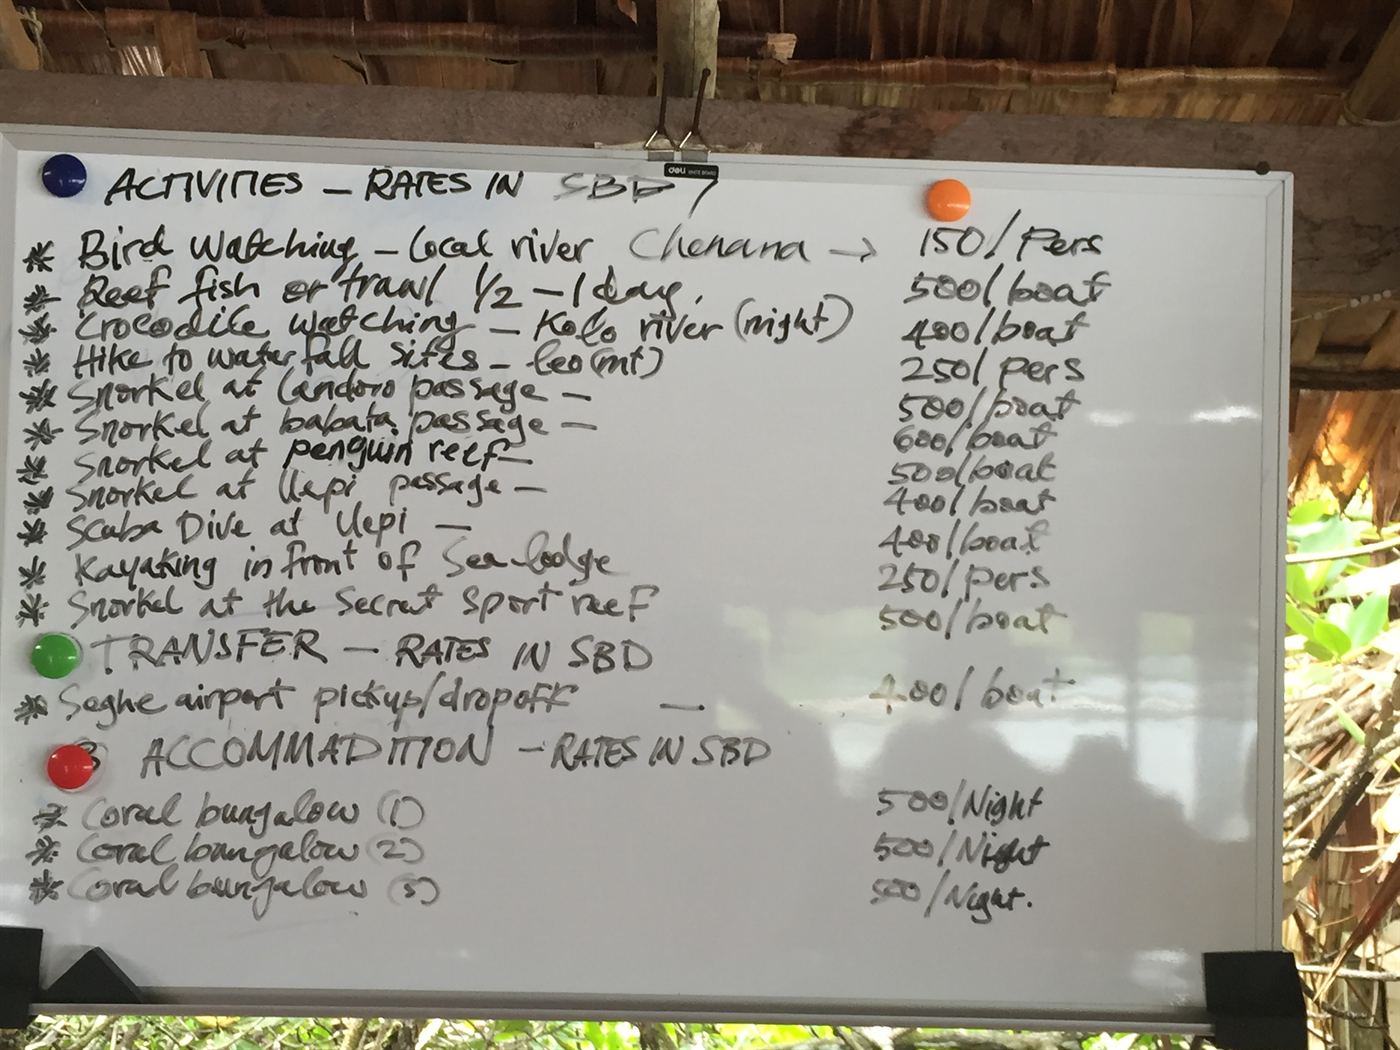 deli WHITE BOARD
ACTIVITIES – RATES IN SBD
* Bird watching – local river Chenana → 150/Pers
* Reef fish or trawl 1/2 – 1 day. 500/boat
* Crocodile watching – Kolo river (night) 400/boat
* Hike to waterfall sites – leo (mt) 250/pers
* Snorkel at Landoro passage – 500/boat
* Snorkel at babata passage – 600/boat
* Snorkel at penguin reef – 500/boat
* Snorkel at Uepi passage – 400/boat
* Scuba Dive at Uepi – 400/boat
* Kayaking in front of Sea lodge 250/pers
* Snorkel at the Secret Sport reef 500/boat
TRANSFER – RATES IN SBD
* Seghe airport pickup/dropoff – 400/boat
3 ACCOMMADITION – RATES IN SBD
* Coral bungalow (1) 500/Night
* Coral bungalow (2) 500/Night
* Coral bungalow (3) 500/Night.